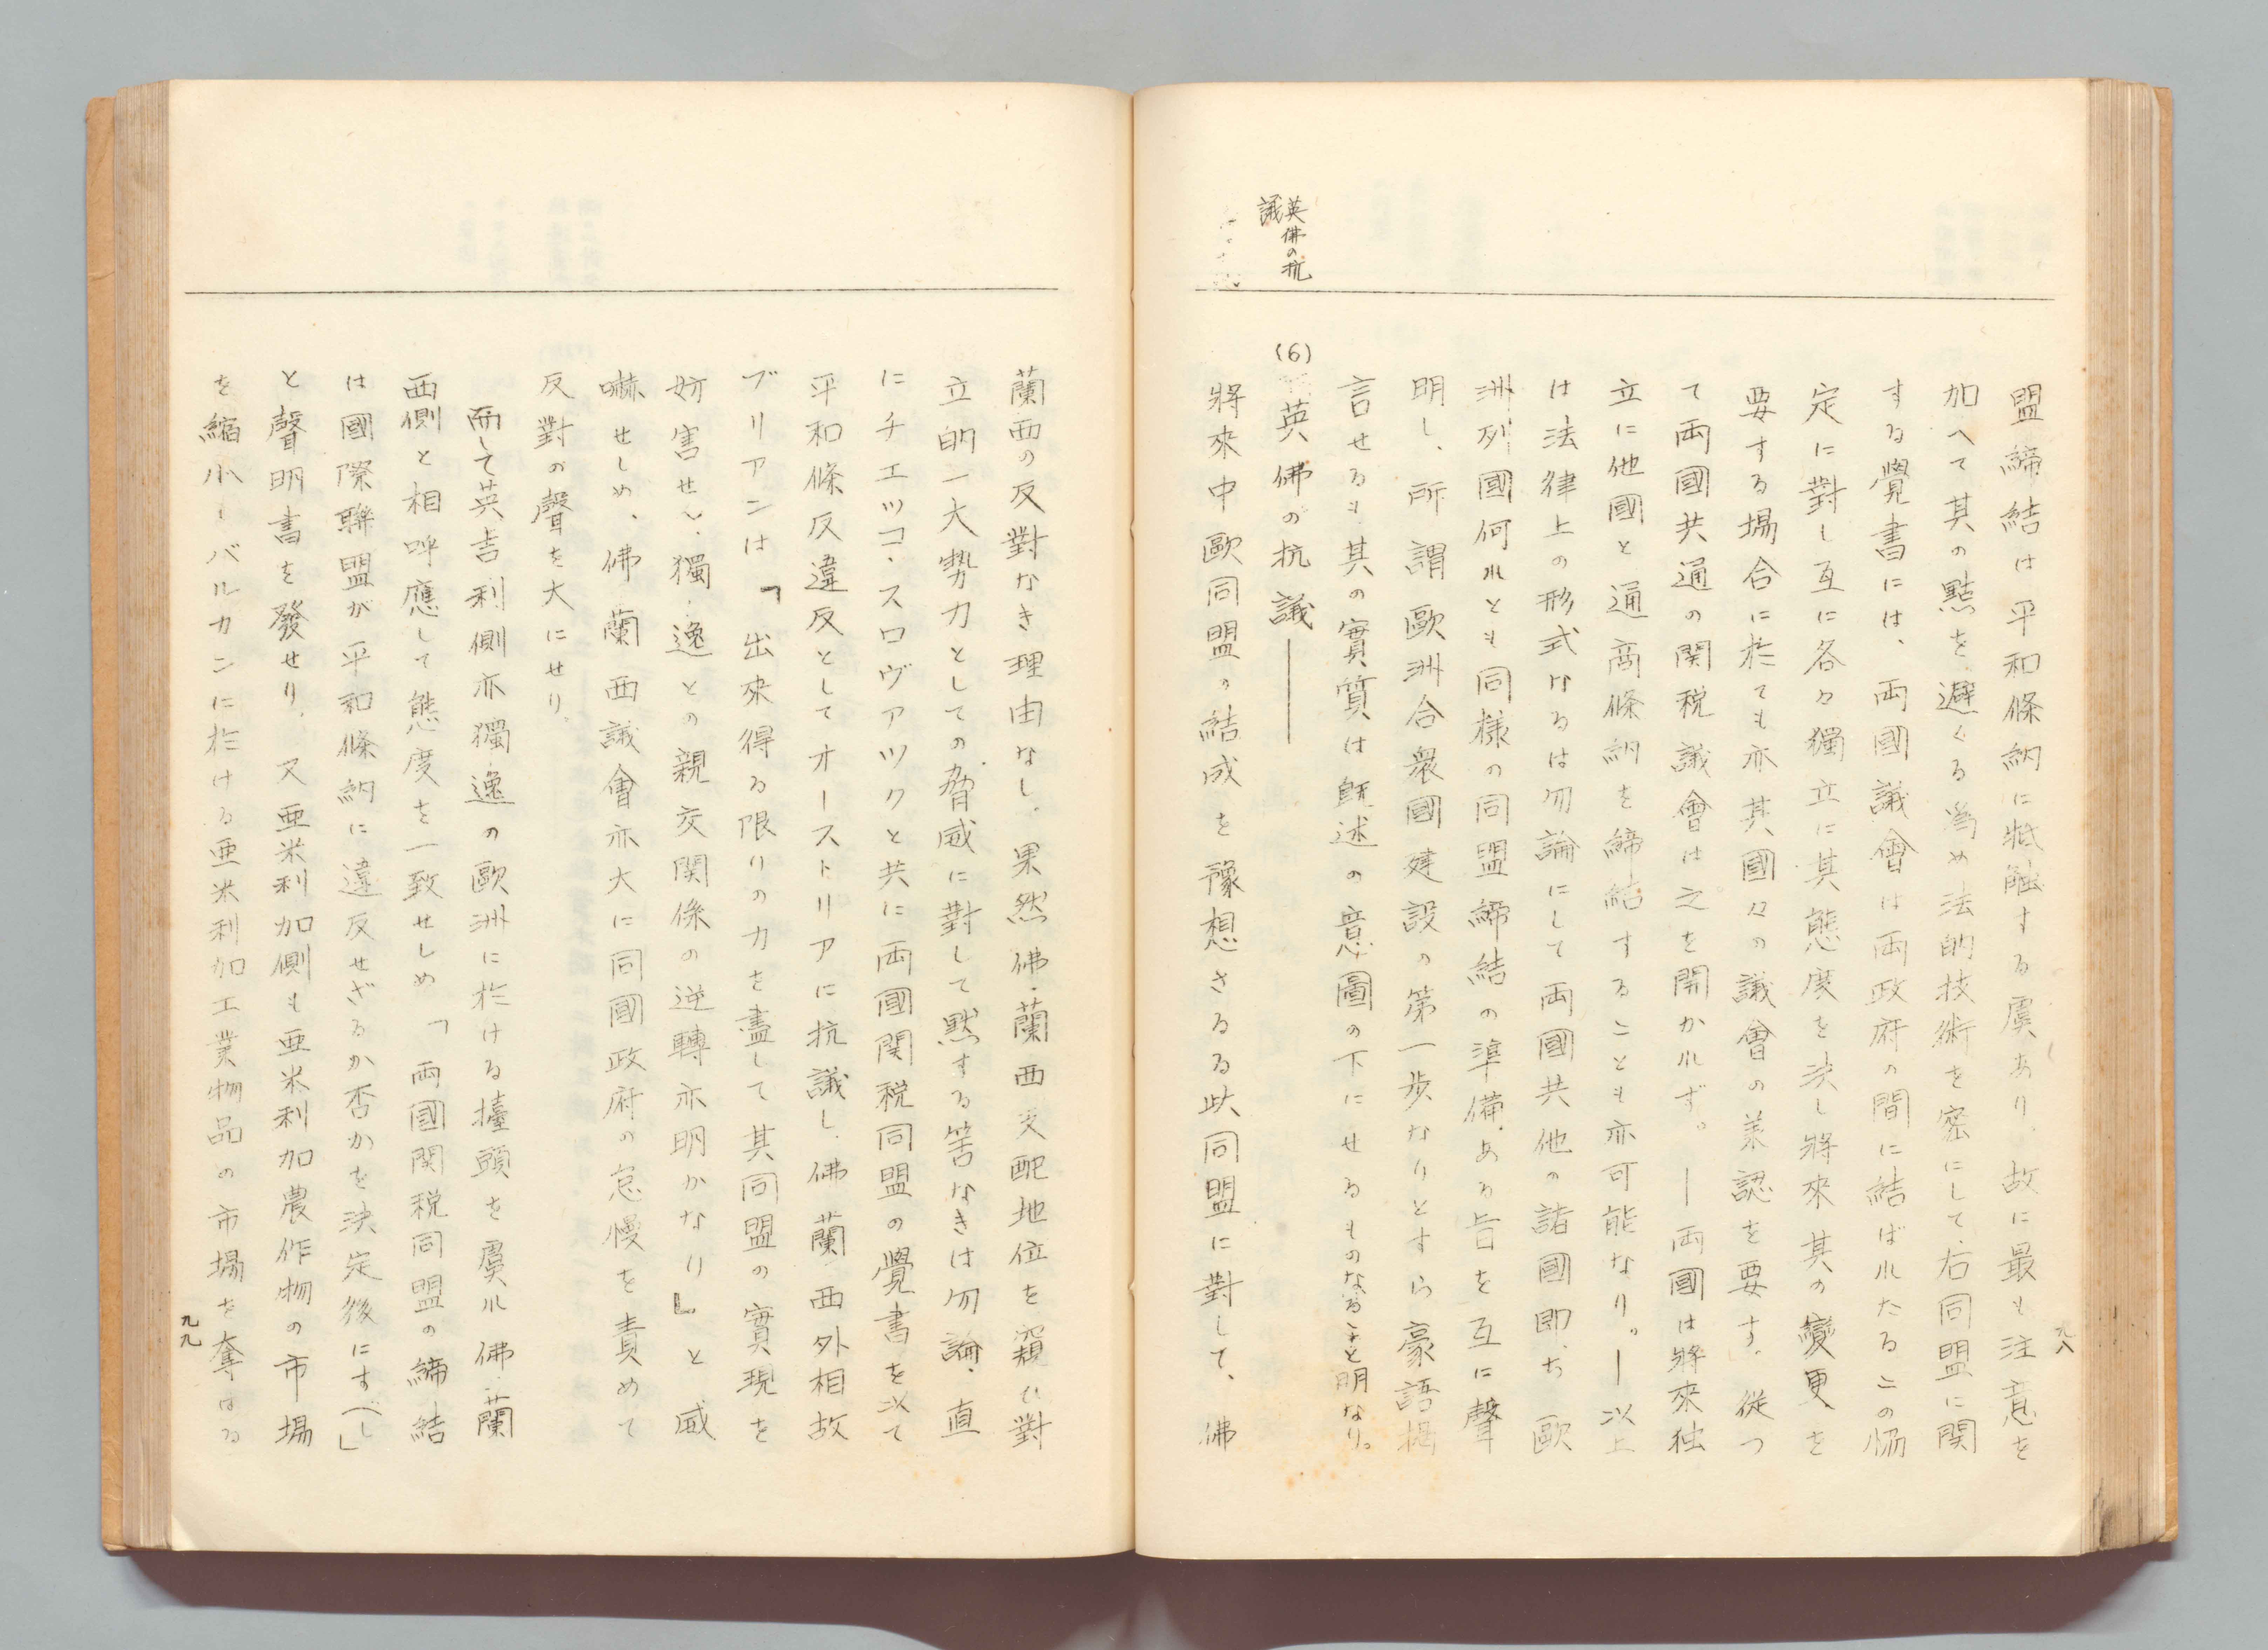 九八
盟締結は平和條約に牴触する虞あり、故に最も注意を
加へて其の點を避くる為め法的技術を密にして、右同盟に関
する覺書には、両國議會は両政府の間に結ばれたるこの協
定に對し互に各々獨立に其態度を決し將來其の變更を
要する場合に於ても亦其國々の議會の承認を要す、従つ
て両國共通の関税議會は之を開かれず。―両國は將來独
立に他國と通商條約を締結することも亦可能なり。―以上
は法律上の形式なるは勿論にして両國共他の諸國即ち歐
洲列國何れとも同様の同盟締結の準備ある旨を互に聲
明し、所謂歐洲合衆國建設の第一歩なりとすら豪語揚
言せるも其の實質は既述の意圖の下にせるものなること明なり。
英佛の抗
議
(6) 英佛の抗議――
將來中歐同盟の結成を豫想さるる此同盟に對して、佛
蘭西の反對なき理由なし。果然佛蘭西支配地位を窺ひ對
立的一大勢力としての脅威に對して黙する筈なきは勿論、直
にチエッコ・スロヴァックと共に両國関税同盟の覺書を以て
平和條反違反としてオーストリアに抗議し、佛蘭西外相故
ブリアンは「出來得る限りの力を盡して其同盟の實現を
妨害せん、獨逸との親交関係の逆轉亦明かなり」と威
嚇せしめ、佛蘭西議會亦大に同國政府の怠慢を責めて
反對の聲を大にせり。
而して英吉利側亦獨逸の歐洲に於ける擡頭を虞れ佛蘭
西側と相呼應して態度を一致せしめ「両國関税同盟の締結
は國際聯盟が平和條約に違反せざるか否かを決定後にすべし」
と聲明書を發せり。又亜米利加側も亜米利加農作物の市場
を縮小しバルカンに於ける亜米利加工業物品の市場を奪はる
九九